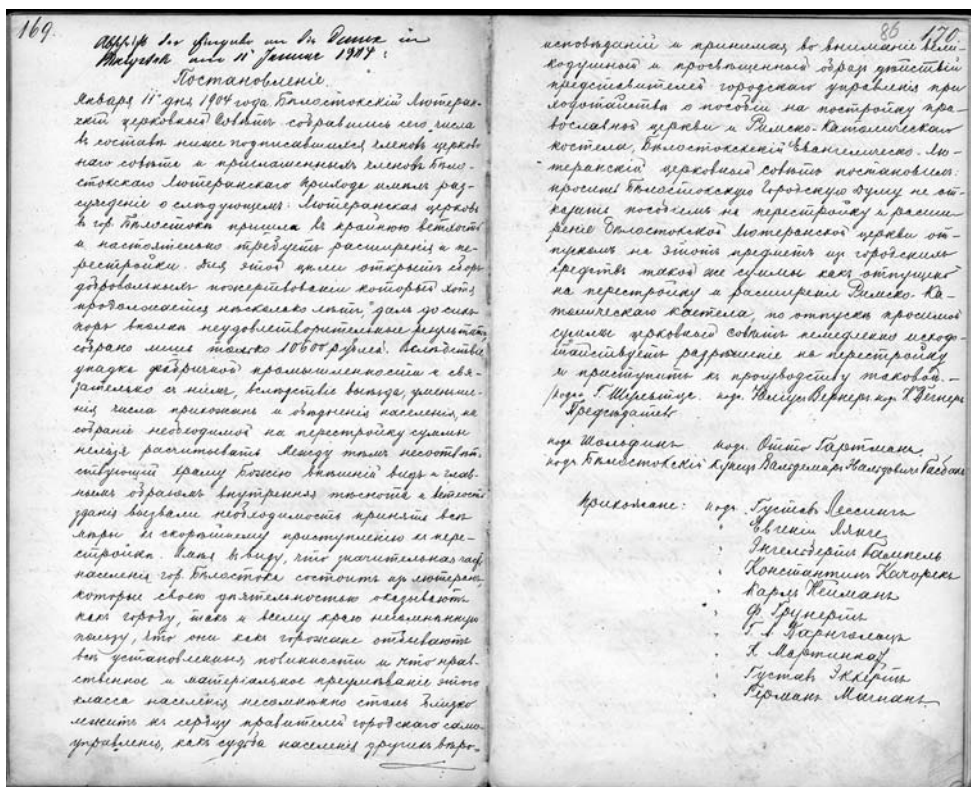 169.
Abschrift der Eingabe an die Duma in
Bialystok vom 11 Januar 1904:
Постановленіе.
Января 11 дня 1904 года Бѣлостокскій Лютеран-
скій церковный Совѣтъ собравшись сего числа
въ составѣ ниже подписавшихся членовъ церков-
наго совѣта и приглашенныхъ членовъ Бѣло-
стокскаго Лютеранскаго прихода имѣлъ раз-
сужденіе о слѣдующемъ: Лютеранская церковь
въ гор. Бѣлостокѣ пришла въ крайнюю ветхость
и настоятельно требуетъ расширенія и пе-
рестройки. Для этой цѣли открытъ сборъ
добровольныхъ пожертвованій который хотя
продолжается нѣсколько лѣтъ, далъ до сихъ
поръ вполнѣ неудовлетворительные результаты,
собрано лишь только 10600 рублей. Вслѣдствіе
упадка фабричной промышленности и свя-
зательно съ нимъ, вслѣдствіе выѣзда, уменьше-
нія числа прихожанъ и обѣднѣнія населенія, на
собраніе необходимой на перестройку суммы
нельзя расчитывать. Между тѣмъ несоотвѣт-
ствующій храму Божію внѣшній видъ и глав-
нымъ образомъ внутренняя тѣснота и ветхость
зданія вызвали необходимость принять всѣ
мѣры къ скорѣйшему приступленію къ пере-
стройкѣ. Имѣя въ виду, что значительная часть
населенія гор. Бѣлостока состоитъ изъ лютеранъ,
которые своею дѣятельностью оказываютъ
какъ городу, такъ и всему краю несомнѣнную
пользу, что они какъ горожане отбываютъ
всѣ установленныя повинности и что нрав-
ственное и матеріальное преуспѣваніе этого
класса населенія несомнѣнно столь близко
лежитъ къ сердцу правителей городскаго само-
управленія, какъ судьба населенія другихъ вѣро-
86 170.
исповѣданій и принимая во вниманіе вели-
кодушный и просвѣщенный образъ дѣйствій
представителей городскаго управленія при
ходатайствѣ о пособіи на постройку пра-
вославной церкви и Римско-Католическаго
костела, Бѣлостокскій Евангелическо-Лю-
теранскій церковный совѣтъ постановилъ:
просить Бѣлостокскую Городскую Думу не от-
казать пособіемъ на перестройку и расши-
реніе Бѣлостокской Лютеранской церкви от-
пускомъ на этотъ предметъ изъ городскихъ
средствъ такой же суммы какъ отпущено
на перестройку и расширеніе Римско-Ка-
толическаго костела, по отпускѣ просимой
суммы церковный совѣтъ немедленно исхода-
тайствуетъ разрѣшеніе на перестройку
и приступитъ къ производству таковой. —
/подп. Г. Шультцъ. подп. Юліусъ Вернеръ подп. К. Вегнеръ
Предсѣдатель
подп. Шольдинъ подп. Отто Гартманъ
подп. Бѣлостокскій Купецъ Вальдемаръ
Прихожане: подп. Густавъ Лессингъ
" Евгеній Лянге
" Энгельбертъ Вампель
" Константинъ Качорекъ
" Карлъ Нейманъ
" Ф. Грунертъ
" Г. А. Варнгольцъ
" К. Мартинка
" Густавъ Эккертъ
" Германъ